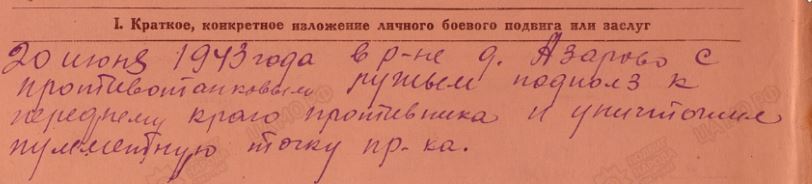 I. Краткое, конкретное изложение личного боевого подвига или заслуг
20 июня 1943 года в р-не д. Азарово с
противотанковым ружьем подполз к
переднему краю противника и уничтожил
пулеметную точку пр-ка.